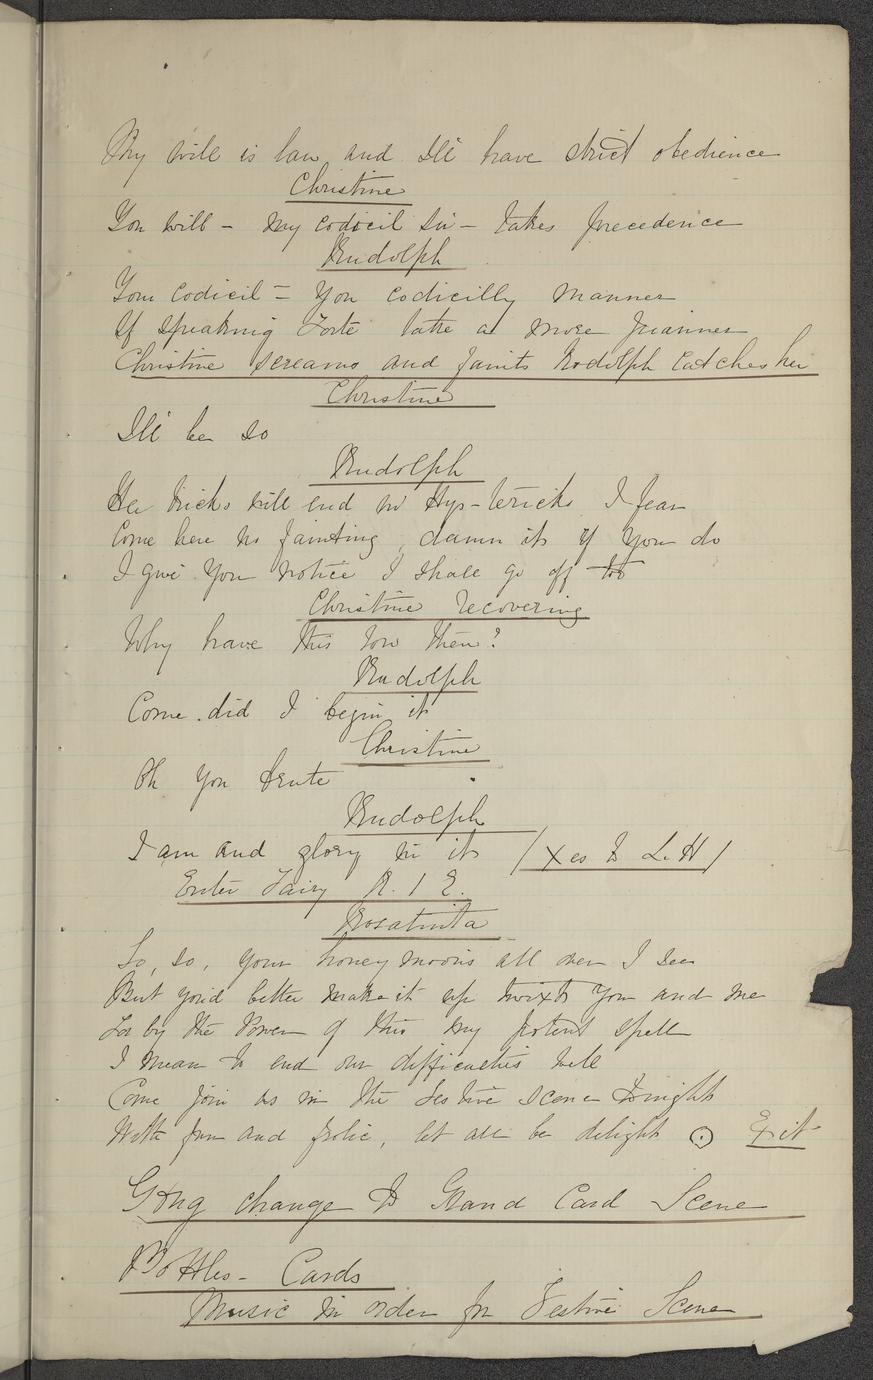 My will is law and Ill have strict obedience
Christine
You will - my codicil Sir - takes precedence
Rudolph
Your codicil = you codicilly manner
Of speaking Forte take a more pianner
Christine screams and faints Rodolph Catches her
Christine
Ill be so
Rudolph
Her tricks will end in Hys-tericks I fear
Come here no fainting, damn it, if you do
I give you notice I shall go off too
Christine recovering
Why have this row then?
Rudolph
Come did I begin it
Christine
Oh you brute
Rudolph
I am and glory in it (Xes to L.H)
Enter Fairy R. 1 E.
Rosatinta
So, so, your honey moons all over I see
But you'd better make it up twixt you and me
For by the Power of this my potent spell
I mean to end our difficulties well
Come join us in the festive scene tonight
With fun and frolic, let all be delight Exit
Gong change to Grand Card Scene
Bottles - Cards
Music in order for Festive Scene